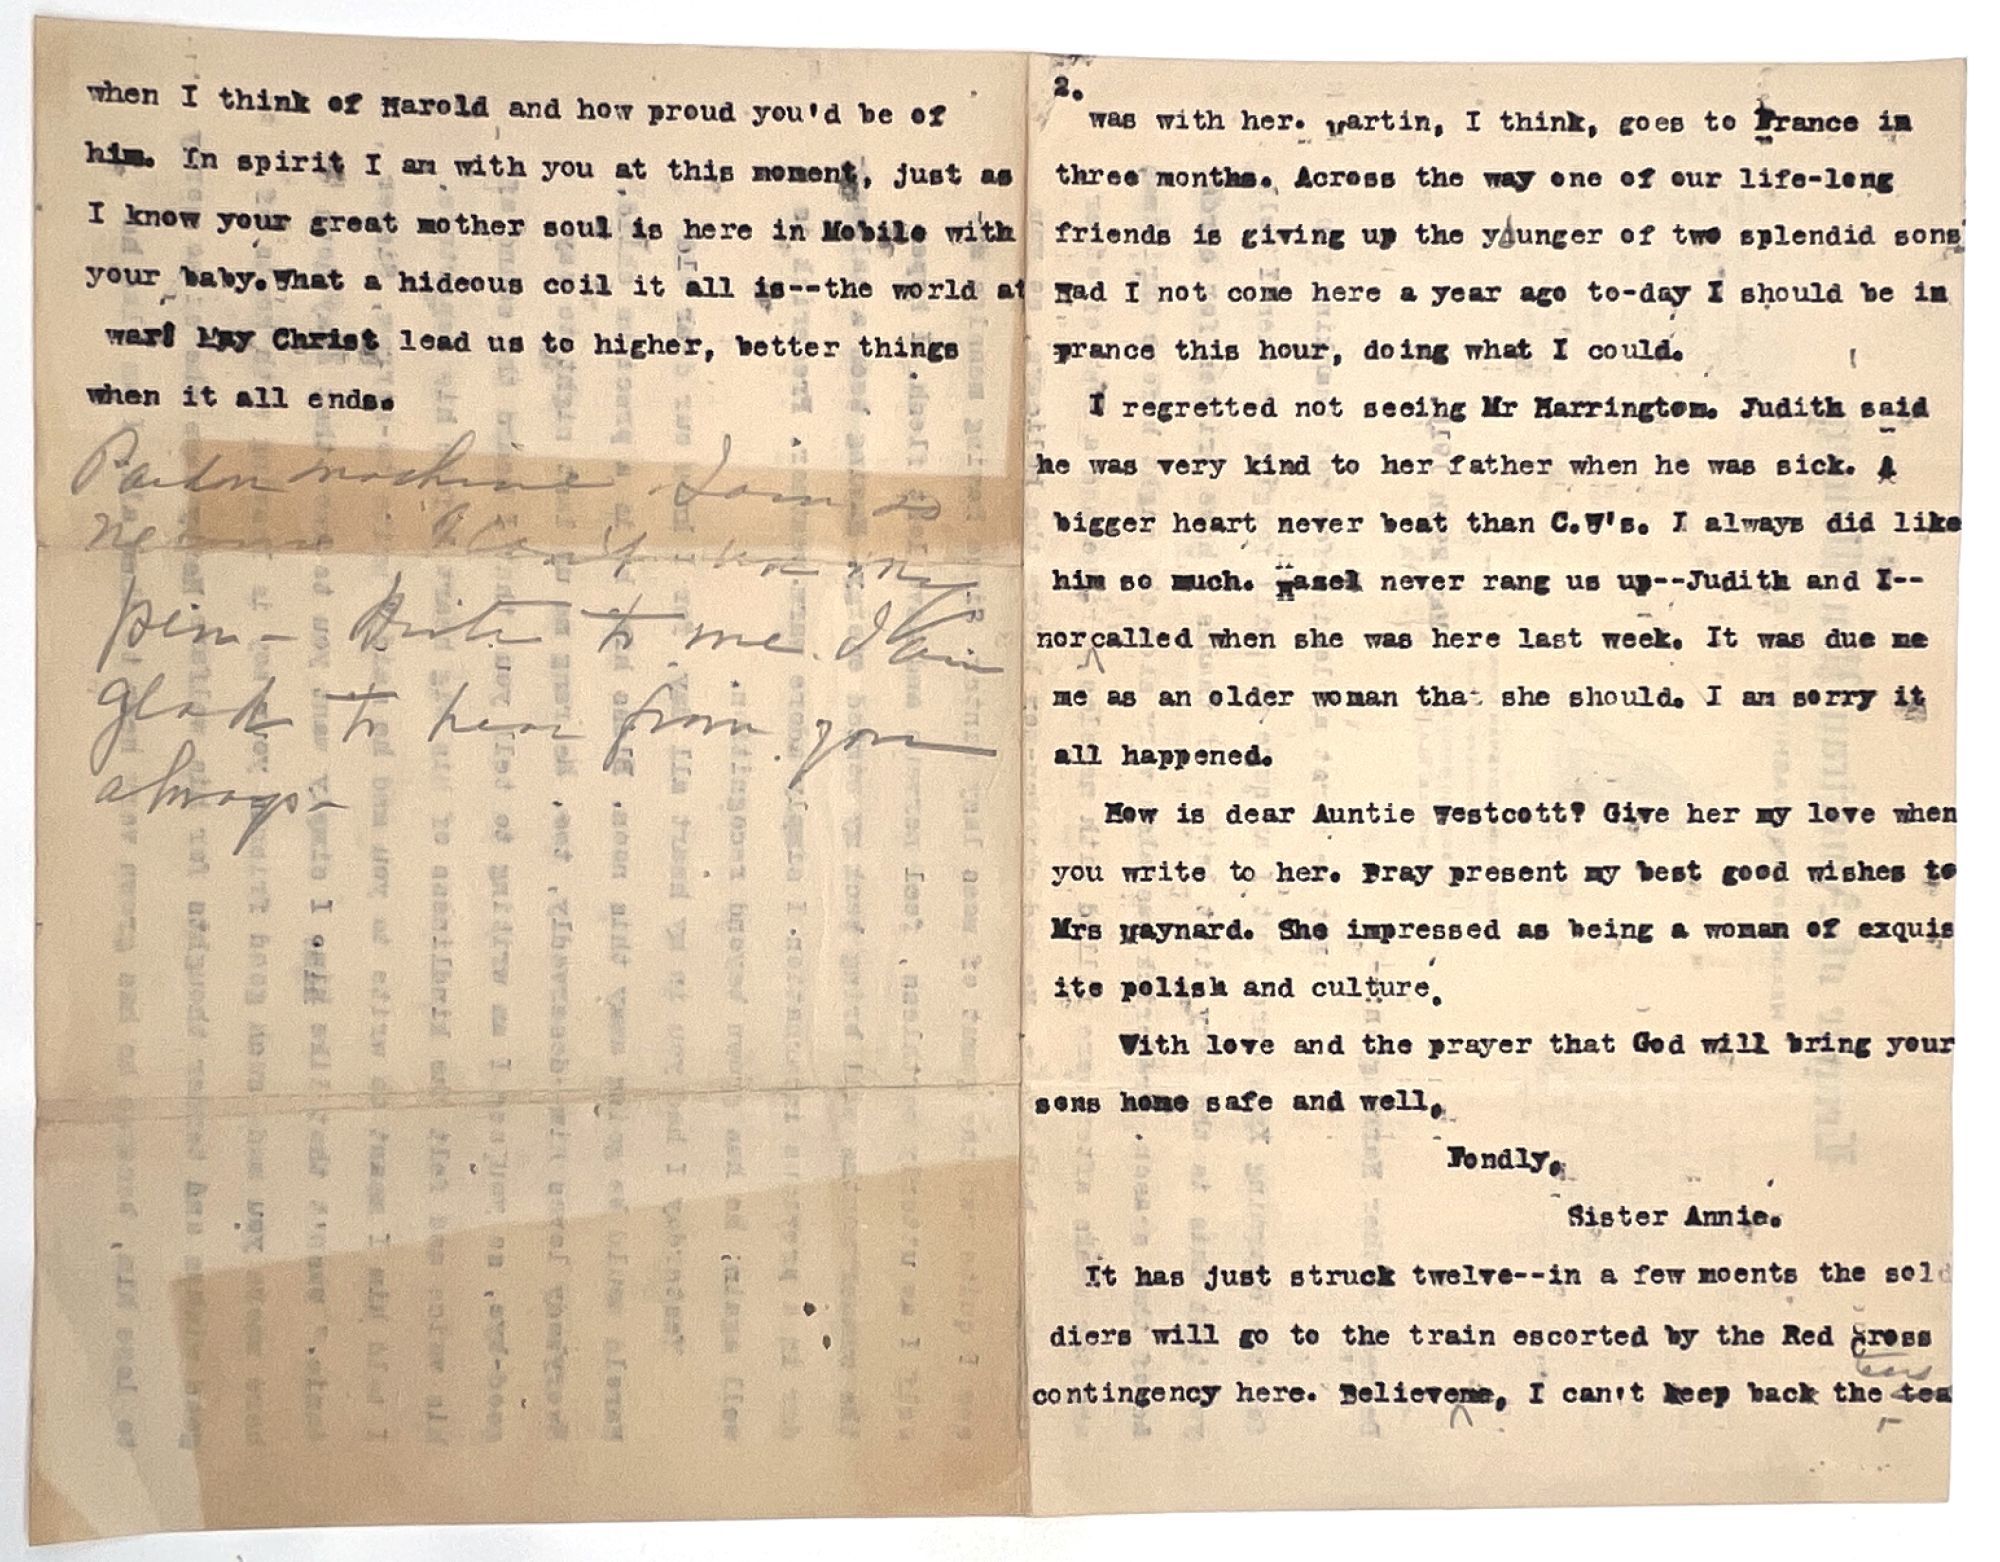 when I think of Harold and how proud you'd be of
him. In spirit I am with you at this moment, just as
I know your great mother soul is here in Mobile with
your baby. What a hideous coil it all is--the world at
war! May Christ lead us to higher, better things
when it all ends.
Pardon machine. I am so
nervous I can't use my
pen - Write to me. I am
glad to hear from you
always -
2.
was with her. Martin, I think, goes to France in
three months. Across the way one of our life-long
friends is giving up the younger of two splendid sons
Had I not come here a year ago to-day I should be in
France this hour, doing what I could.
I regretted not seeihg Mr Harrington. Judith said
he was very kind to her father when he was sick. A
bigger heart never beat than C.W's. I always did like
him so much. Hazel never rang us up--Judith and I--
nor called when she was here last week. It was due me
me as an older woman that she should. I am sorry it
all happened.
How is dear Auntie Westcott? Give her my love when
you write to her. Pray present my best good wishes to
Mrs Maynard. She impressed as being a woman of exquis
ite polish and culture.
With love and the prayer that God will bring your
sons home safe and well,
Fondly,
Sister Annie.
It has just struck twelve--in a few moents the sol
diers will go to the train escorted by the Red Cross
tears
contingency here. Believe me, I can't keep back the tea